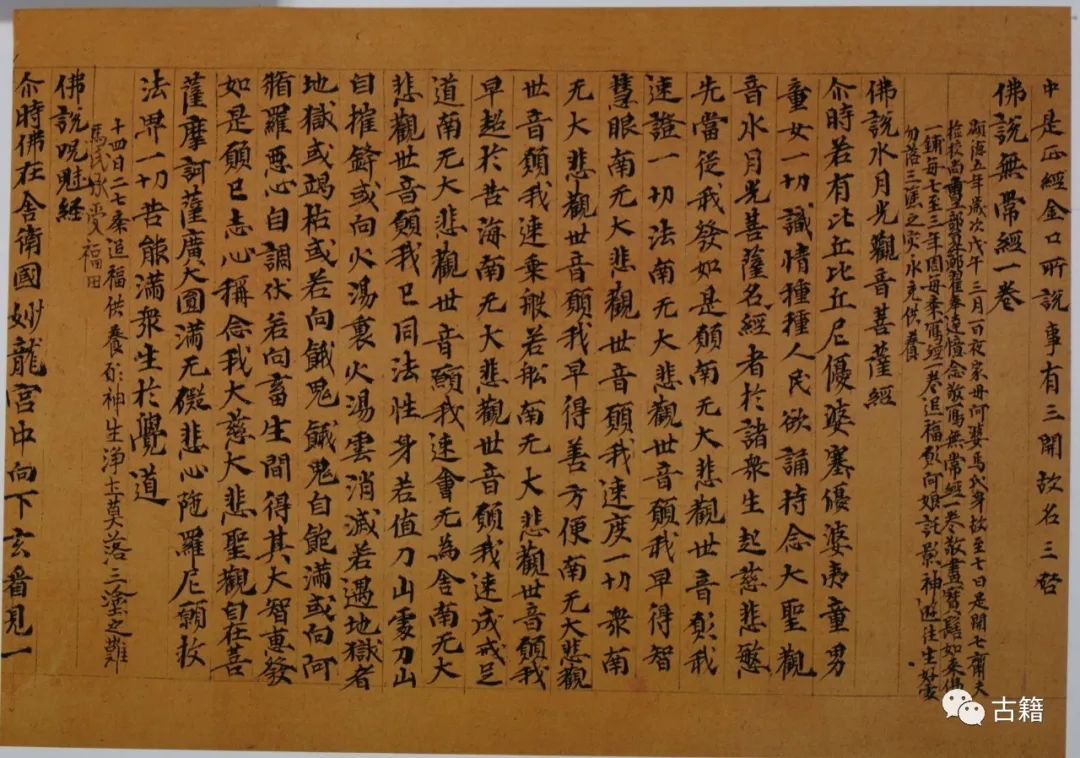 中是正經金口所說事有三開故名三啓
佛說無常經一卷
顯德五年歲次戊午三月一日夜家母阿婆馬氏身故至七日是開七齋夫
檢校尚書工部員外郎翟奉達憶念敬寫無常經一卷敬畫寶髻如來佛
一鋪每七至三年周每齋寫經一卷追福願阿娘託影神遊往生好處
勿落三塗之災永充供養
佛說水月光觀音菩薩經
尒時若有比丘比丘尼優婆塞優婆夷童男
童女一切識情種種人民欲誦持念大聖觀
音水月光菩薩名經者於諸衆生起慈悲愍
先當從我發如是願南无大悲觀世音願我
速證一切法南无大悲觀世音願我早得智
慧眼南无大悲觀世音願我速度一切衆南
无大悲觀世音願我早得善方便南无大悲觀
世音願我速乗般若舩南无大悲觀世音願我
早超於苦海南无大悲觀世音願我速成戒足
道南无大悲觀世音願我速會无為舍南无大
悲觀世音願我已同法性身若值刀山處刀山
自摧鋒或向火湯裏火湯雲消滅若遇地獄者
地獄或竭枯或若向餓鬼餓鬼自飽滿或向阿
脩羅悪心自調伏若向畜生間得其大智惠發
如是願已志心稱念我大慈大悲聖觀自在菩
薩摩訶薩廣大圓滿无礙悲心陁羅尼願救
法界一切苦能滿衆生於覺道
十四日二七齋追福供養願神生浄土莫落三塗之難
馬氏承受福田
佛說呪魅経
尒時佛在舍衛國妙龍宮中向下玄看見一
古籍